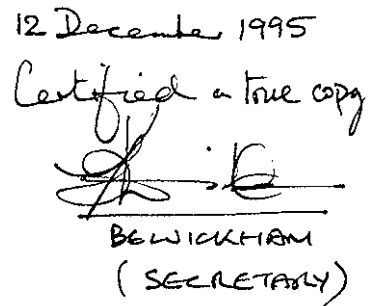 12 December 1995
Certified a true copy
BEWICKHAM
(SECRETARY)